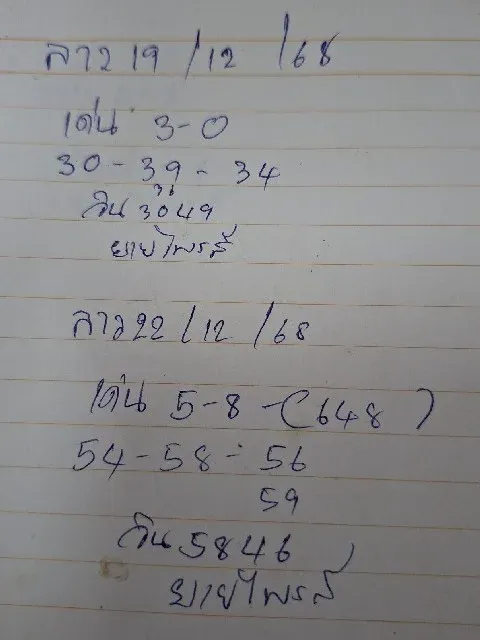 ลาว 19/12/68
เด่น 3-0
30-39-34
36
วิน 3049
ยายไพรลี
ลาว 22/12/68
เด่น 5-8-(648)
54-58-56
59
วิน 5846
ยายไพรลี